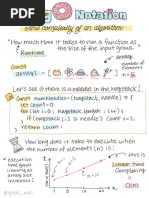 Big O Notation
time complexity of an algorithm
"How much time it takes to run a function as the size of the input grows."
Runtime
Const array1 = [
n=5
Let's see if there is a needle in the haystack!
Const numNeedles = (haystack, needle) => {
let count = 0
for (let i = 0; i < haystack.length; i++) {
if (haystack[i] === needle) count += 1
return count
}
How long does it take to execute when the number of elements (n) is:
execution time grows linearly as array size increases!
n=5
n=10
Linear Time Complexity
O(n)